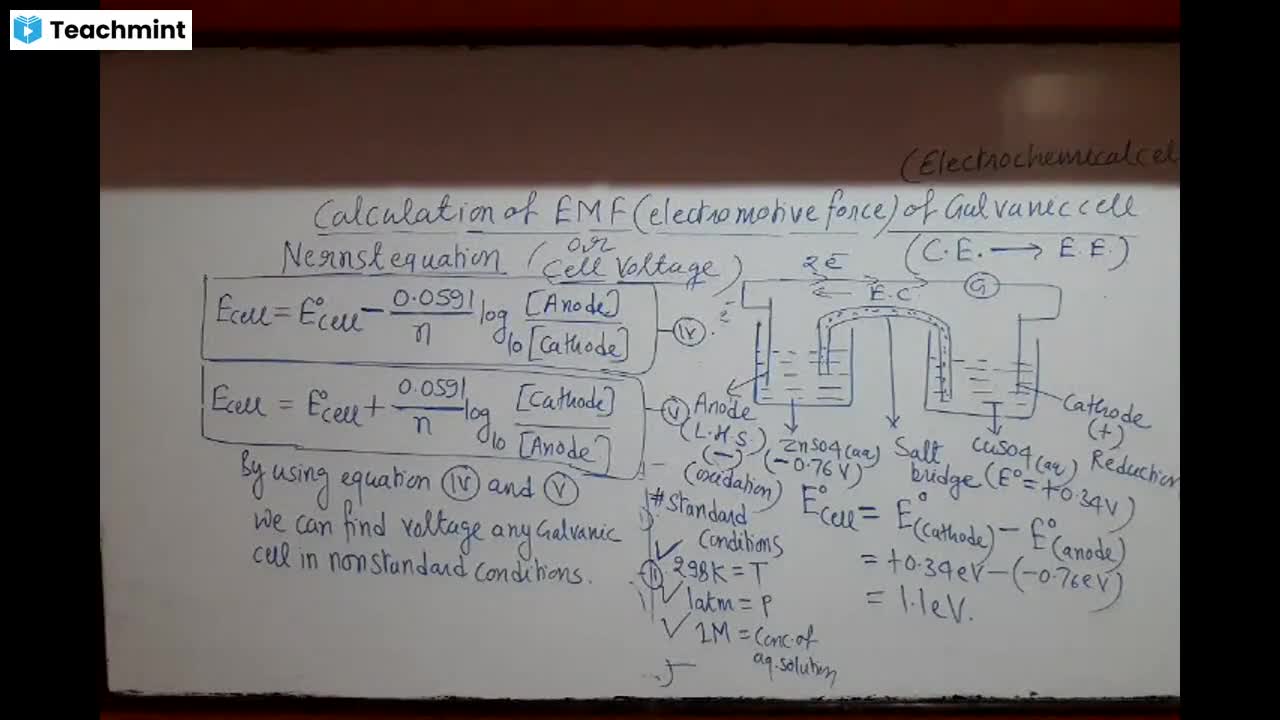 Teachmint
(Electrochemical cel
Calculation of EMF (electromotive force) of Galvanic cell
or
Nernst equation (Cell Voltage)
(C.E. → E.E.)
Ecell = E°cell - 0.0591/n log10 [Anode]/[Cathode]
IV
Ecell = E°cell + 0.0591/n log10 [Cathode]/[Anode]
V
By using equation IV and V
we can find voltage any Galvanic
cell in nonstandard conditions.
2e̅
E.C
G
e̅
Anode
(L.H.S.)
(-)
(oxidation)
ZnSO4(aq)
(-0.76V)
Salt
bridge
CuSO4(aq)
(E° = +0.34V)
Cathode
(+)
Reduction
# Standard
Conditions
298K = T
1atm = P
1M = Conc. of
aq. solution
E°cell = E°(Cathode) - E°(anode)
= +0.34eV - (-0.76eV)
= 1.1eV.